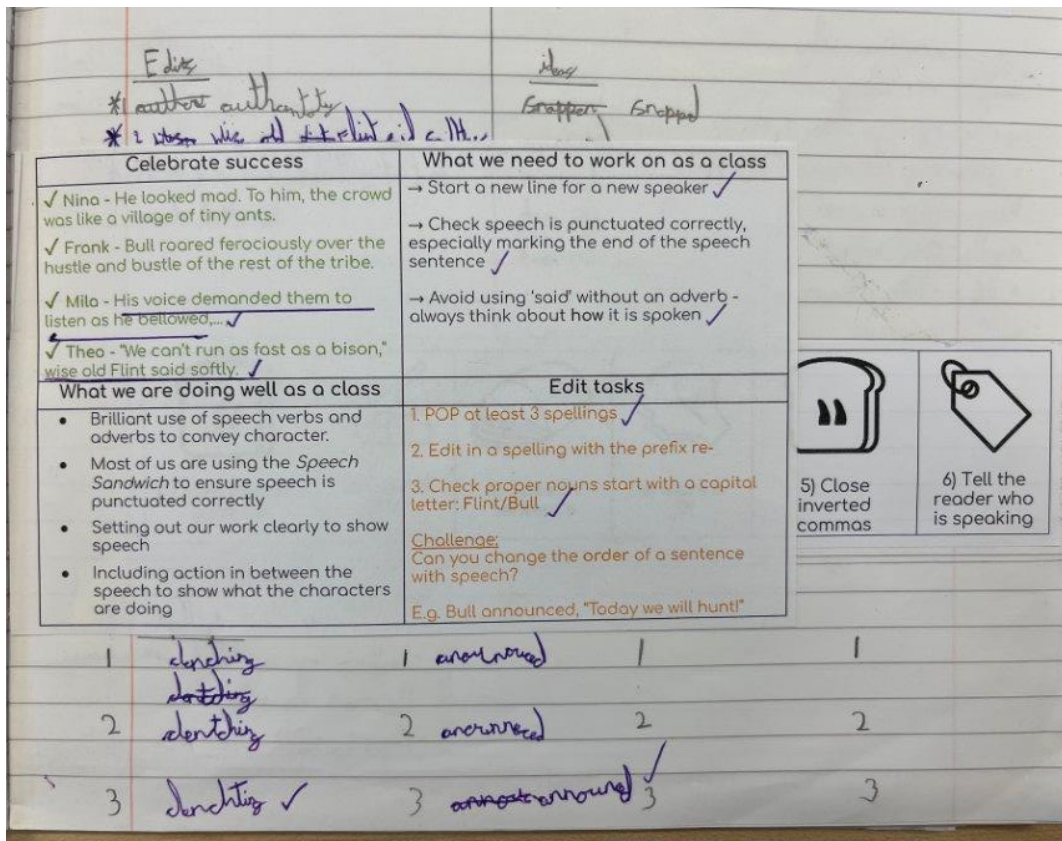 Edits
ideas
* authority
snapped
* 2 wise old Flint
Celebrate success
✓ Nina - He looked mad. To him, the crowd
was like a village of tiny ants.
✓ Frank - Bull roared ferociously over the
hustle and bustle of the rest of the tribe.
✓ Mila - His voice demanded them to
listen as he bellowed,... ✓
✓ Theo - "We can't run as fast as a bison,"
wise old Flint said softly. ✓
What we need to work on as a class
→ Start a new line for a new speaker ✓
→ Check speech is punctuated correctly,
especially marking the end of the speech
sentence ✓
→ Avoid using 'said' without an adverb -
always think about how it is spoken ✓
What we are doing well as a class
• Brilliant use of speech verbs and
adverbs to convey character.
• Most of us are using the Speech
Sandwich to ensure speech is
punctuated correctly
• Setting out our work clearly to show
speech
• Including action in between the
speech to show what the characters
are doing
Edit tasks
1. POP at least 3 spellings ✓
2. Edit in a spelling with the prefix re-
3. Check proper nouns start with a capital
letter: Flint/Bull ✓
Challenge:
Can you change the order of a sentence
with speech?
E.g. Bull announced, "Today we will hunt!"
5) Close
inverted
commas
6) Tell the
reader who
is speaking
1 1 1 1
2 2 2 2
3 ✓ 3 ✓ 3 3